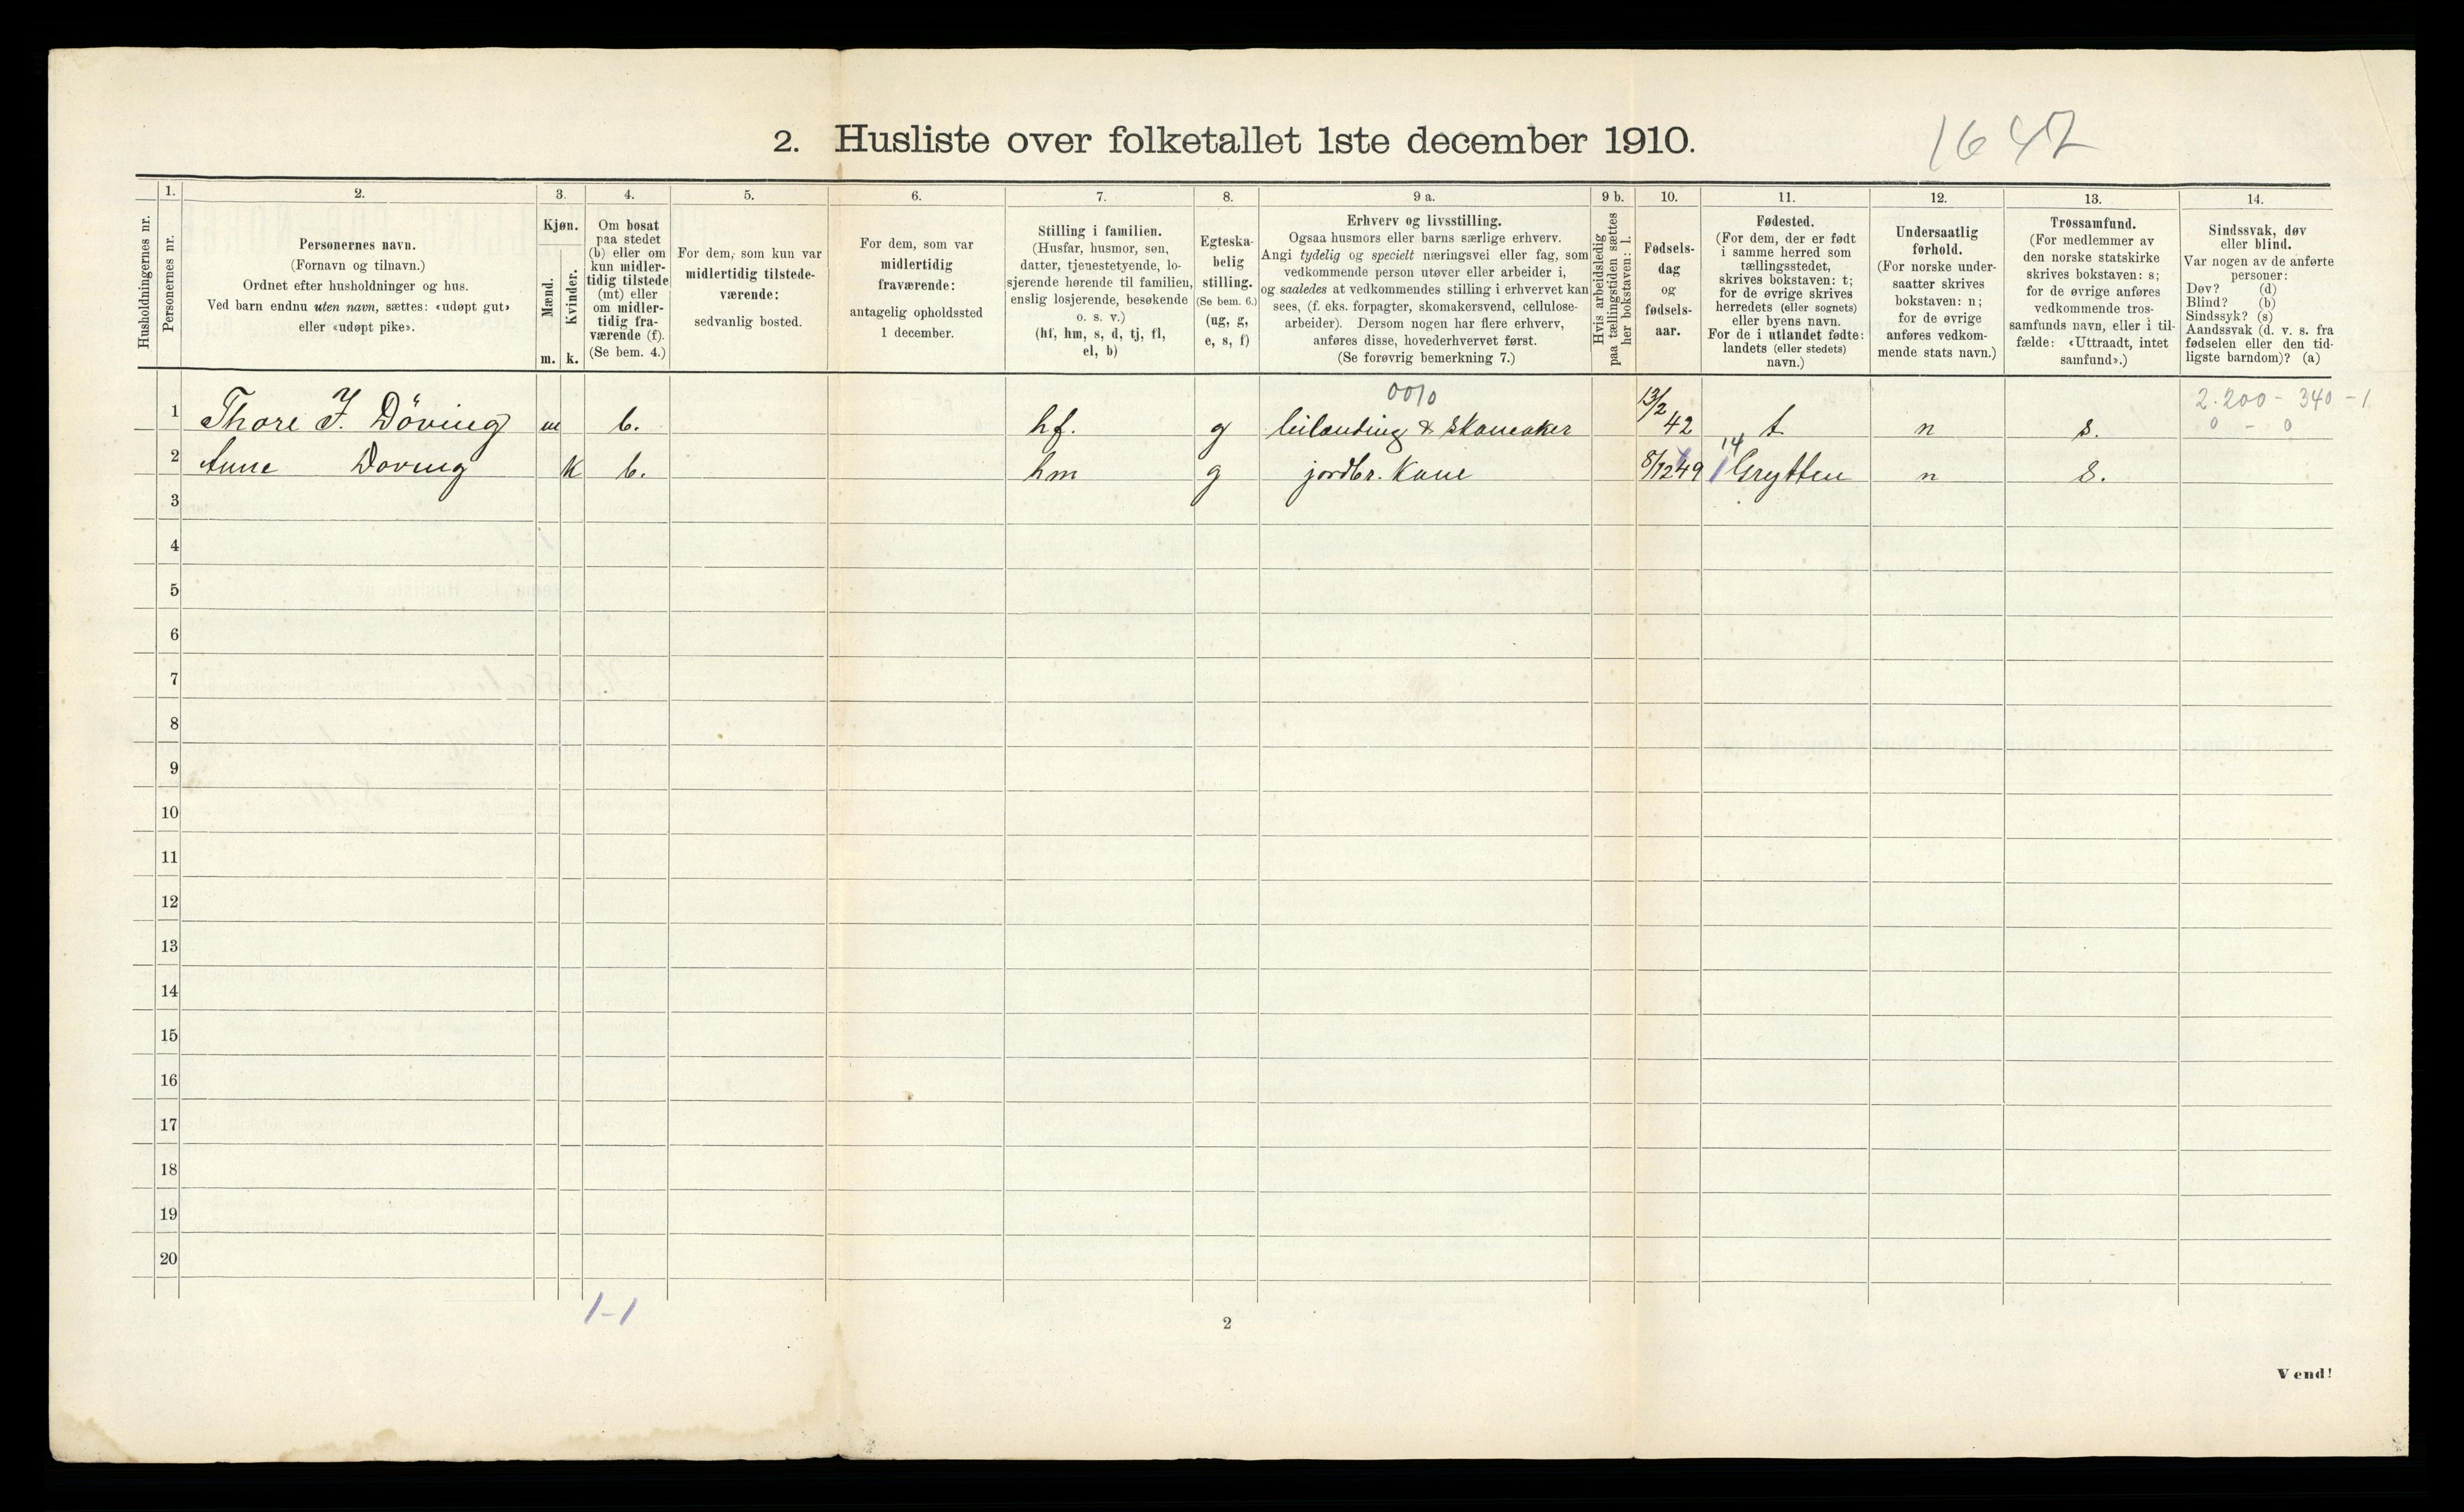 2. Husliste over folketallet 1ste december 1910.
1647
Husholdningernes nr.
1.
Personernes nr.
2.
Personernes navn.
(Fornavn og tilnavn.)
Ordnet efter husholdninger og hus.
Ved barn endnu uten navn, sættes: «udøpt gut»
eller «udøpt pike».
3.
Kjøn.
Mænd.
Kvinder.
m. k.
4.
Om bosat
paa stedet
(b) eller om
kun midler-
tidig tilstede
(mt) eller
om midler-
tidig fra-
værende (f).
(Se bem. 4.)
5.
For dem, som kun var
midlertidig tilstede-
værende:
sedvanlig bosted.
6.
For dem, som var
midlertidig
fraværende:
antagelig opholdssted
1 december.
7.
Stilling i familien.
(Husfar, husmor, søn,
datter, tjenestetyende, lo-
sjerende hørende til familien,
enslig losjerende, besøkende
o. s. v.)
(hf, hm, s, d, tj, fl,
el, b)
8.
Egteska-
belig
stilling.
(Se bem. 6.)
(ug, g,
e, s, f)
9 a.
Erhverv og livsstilling.
Ogsaa husmors eller barns særlige erhverv.
Angi tydelig og specielt næringsvei eller fag, som
vedkommende person utøver eller arbeider i,
og saaledes at vedkommendes stilling i erhvervet kan
sees, (f. eks. forpagter, skomakersvend, cellulose-
arbeider). Dersom nogen har flere erhverv,
anføres disse, hovederhvervet først.
(Se forøvrig bemerkning 7.)
9 b.
Hvis arbeidsledig
paa tællingstiden sættes
her bokstaven: l.
10.
Fødsels-
dag
og
fødsels-
aar.
11.
Fødested.
(For dem, der er født
i samme herred som
tællingsstedet,
skrives bokstaven: t;
for de øvrige skrives
herredets (eller sognets)
eller byens navn.
For de i utlandet fødte:
landets (eller stedets)
navn.)
12.
Undersaatlig
forhold.
(For norske under-
saatter skrives
bokstaven: n;
for de øvrige
anføres vedkom-
mende stats navn.)
13.
Trossamfund.
(For medlemmer av
den norske statskirke
skrives bokstaven: s;
for de øvrige anføres
vedkommende tros-
samfunds navn, eller i til-
fælde: «Uttraadt, intet
samfund».)
14.
Sindssvak, døv
eller blind.
Var nogen av de anførte
personer:
Døv? (d)
Blind? (b)
Sindssyk? (s)
Aandssvak (d. v. s. fra
fødselen eller den tid-
ligste barndom)? (a)
0010 13/2 2.200 - 340 - 1
1 Thore J. Döving m b. hf. g leilænding & skomaker 42 t n s. 0 - 0
14
2 Anne Doving k b. hm g jordbr. Kone 8/12 49 Grytten n s.
3
4
5
6
7
8
9
10
11
12
13
14
15
16
17
18
19
20
1-1
2
Vend!